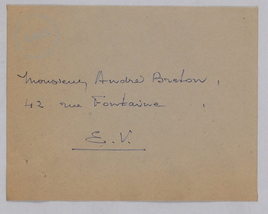 Monsieur André Breton,
42 rue Fontaine,
E. V.